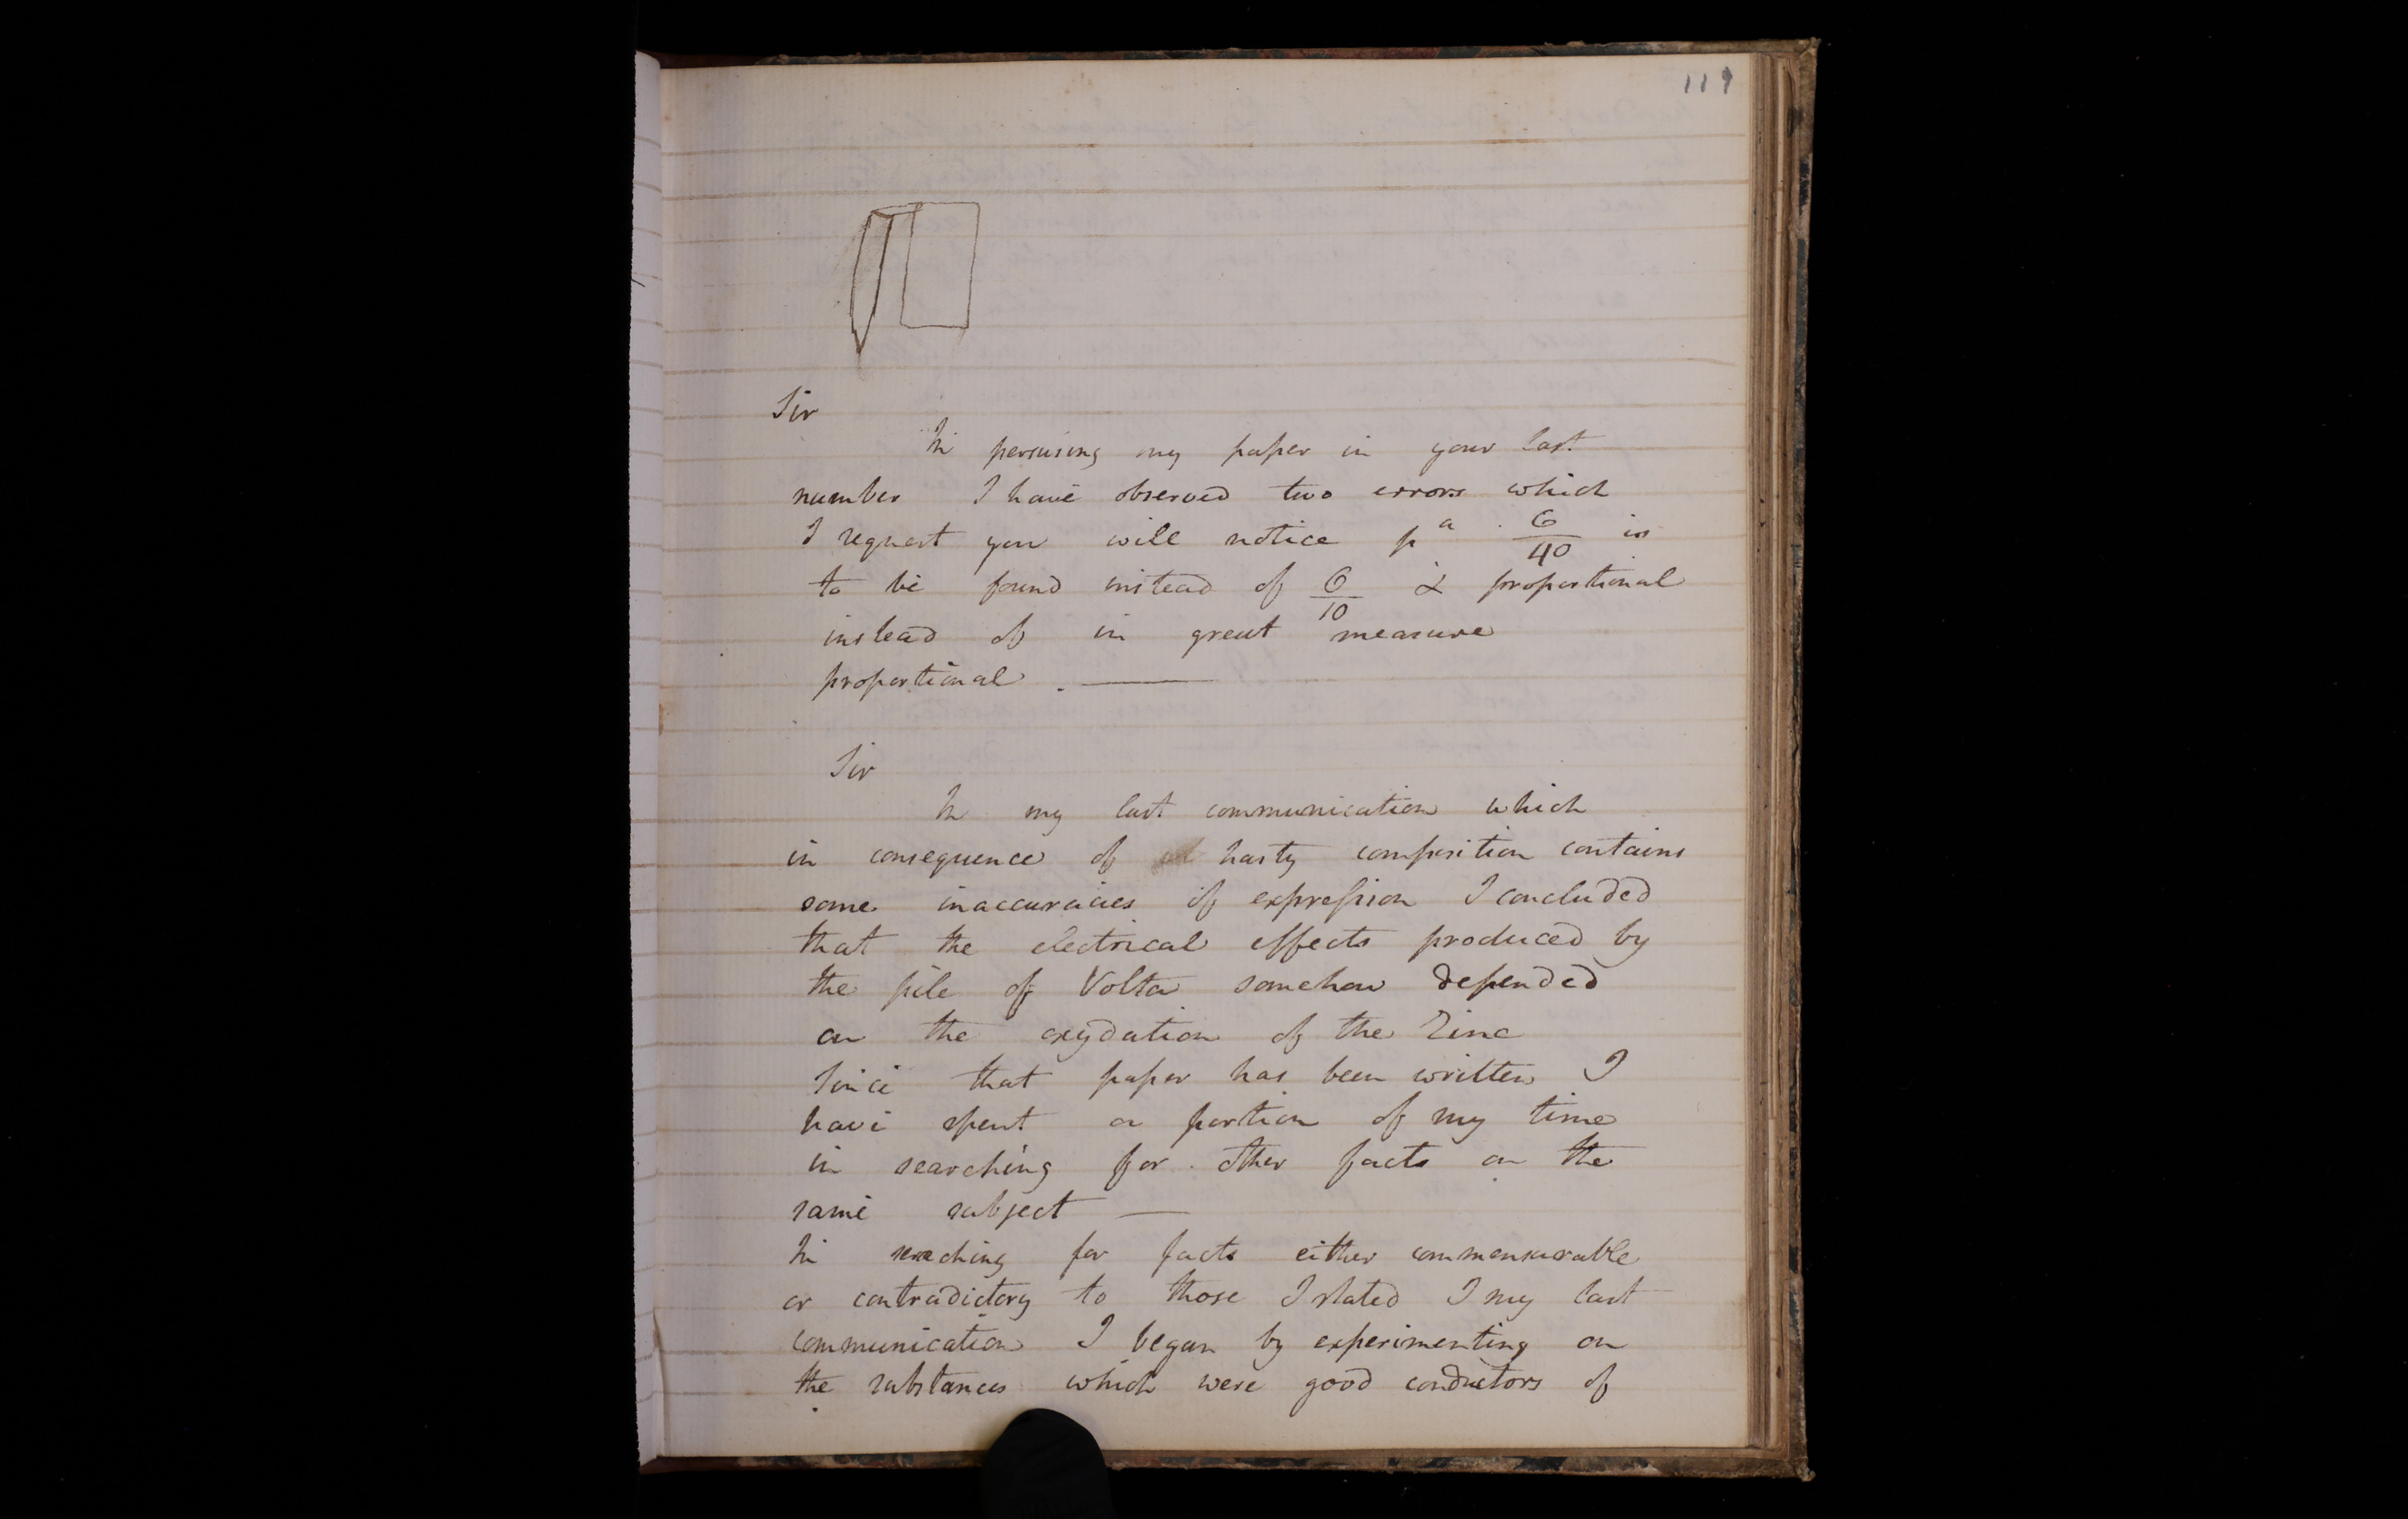 119
Sir
In perusing my paper in your last
number I have observed two errors which
I request you will notice pa. 6/40 is
to be found instead of 6/10 & proportional
instead of in great measure
proportional. —
Sir
In my last communication which
in consequence of hasty composition contains
some inaccuracies of expression I concluded
that the electrical effects produced by
the pile of Volta somehow depended
on the oxydation of the Zinc
Since that paper has been written I
have spent a portion of my time
in searching for other facts on the
same subject —
In searching for facts either commensurable
or contradictory to those I stated I my last
communication I began by experimenting on
the substances which were good conductors of